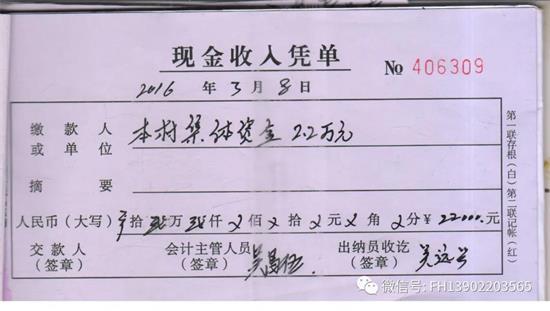 现金收入凭单
№ 406309
2016 年 3 月 8 日
缴款人或单位 本村集体资金 2.2万元
摘要
人民币(大写) 拾 贰万 贰仟 0佰 0拾 0元 0角 0分 ¥ 22000.元
交款人(签章) 会计主管人员(签章) 吴 出纳员收讫(签章) 吴远
第一联存根(白) 第二联记帐(红)
微信号: FH13902203565